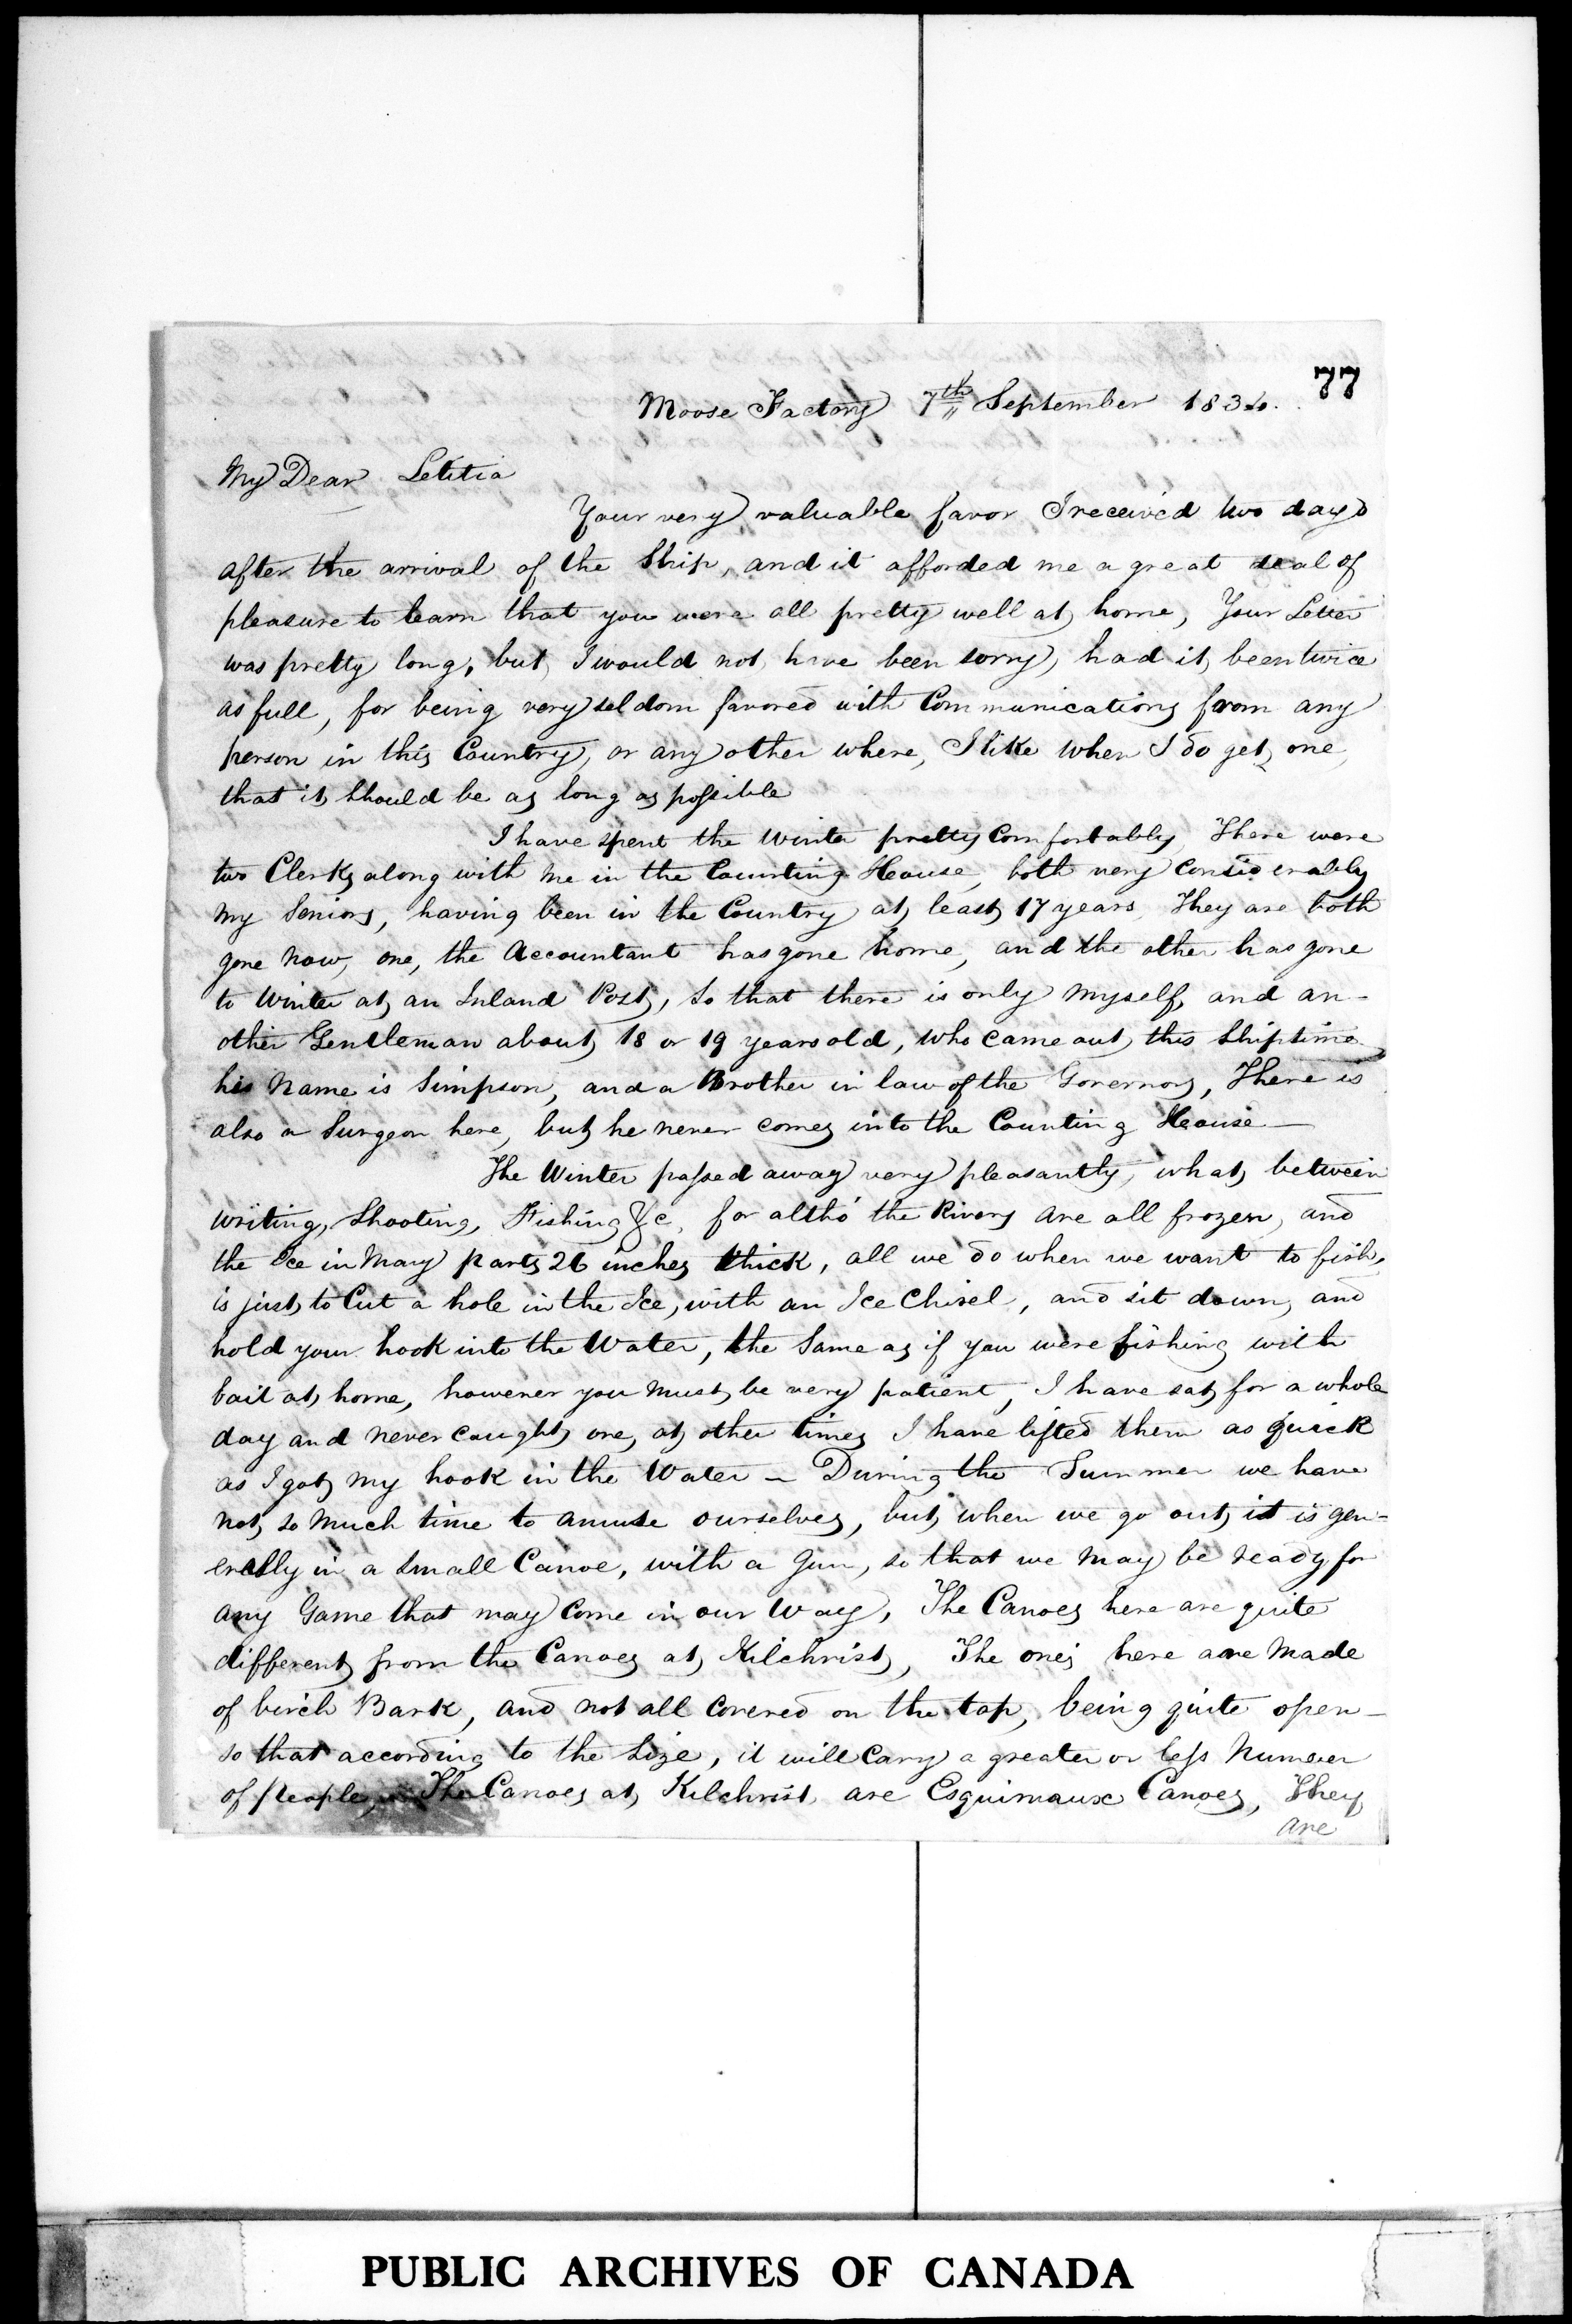 77
Moose Factory 7th September 1834.
My Dear Letitia
Your very valuable favor I receiv'd two days
after the arrival of the Ship, and it afforded me a great deal of
pleasure to learn that you were all pretty well at home, Your Letter
was pretty long, but I would not have been sorry, had it been twice
as full, for being very seldom favored with Communications from any
person in this Country, or any other where, I like when I do get one,
that it should be as long as possible
I have spent the Winter pretty Comfortably, There were
two Clerks along with me in the Counting House, both very considerably
my Seniors, having been in the Country at least 17 years, They are both
gone now, one, the Accountant has gone home, and the other has gone
to Winter at an Inland Post, so that there is only myself and an-
other Gentleman about 18 or 19 years old, who came out this Shiptime
his Name is Simpson, and a Brother in law of the Governors, There is
also a Surgeon here, but he never comes into the Counting House —
The Winter passed away very pleasantly, what between
writing, Shooting, Fishing &c, for altho' the Rivers are all frozen, and
the Ice in Many parts 26 inches thick, all we do when we want to fish,
is just to Cut a hole in the Ice, with an Ice Chisel, and sit down, and
hold your hook into the Water, the Same as if you were fishing with
bait at home, however you must be very patient, I have sat for a whole
day and never caught one, at other times I have lifted them as quick
as I got my hook in the Water — During the Summer we have
not so much time to amuse ourselves, but when we go out it is gen-
erally in a small Canoe, with a Gun, so that we may be ready for
any Game that may Come in our Way, The Canoes here are quite
different from the Canoes at Kilchrist, The ones here are Made
of birch Bark, and not all Covered on the top, being quite open —
so that according to the Size, it will Cary a greater or less Number
of people, The Canoes at Kilchrist are Esquimaux Canoes, They
are
PUBLIC ARCHIVES OF CANADA